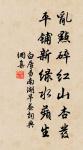 亂點碎紅山杏發
平鋪新綠水蘋生
白居易南湖早春詞典
網